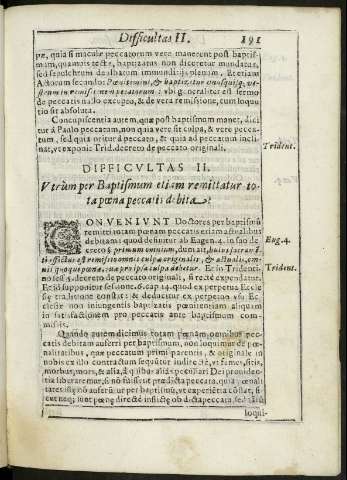 Difficultas II. 191
pæ, quia si maculæ peccatorum vere manerent post baptis-
mum, quamvis tectæ, baptizatus non diceretur mundatus,
sed sepulchrum dealbatum immunditijs plenum. Et etiam
Actorum secundo: Pœnitemini, & baptizetur unusquisq; ve-
strum in remissionem peccatorum: vbi generaliter est sermo
de peccatis nullo excepto, & de vera remissione, cum loquu-
tio sit absoluta.
Concupiscentia autem, quæ post baptismum manet, dici-
tur á Paulo peccatum, non quia vere sit culpa, & vere pecca-
tum, sed quia oritur á peccato, & quia ad peccatum incli-
nat, vt exponit Trid. decreto de peccato originali.
Trident.
DIFFICVLTAS II.
Vtrùm per Baptismum etiam remittatur to-
ta pœna peccati: debita?
CONVENIVNT Doctores per baptismũ
remitti totam pœnam peccatis actualibus
debitam: quod definitur ab Eugen. 4. in suo de
creto §. primum omnium, dum ait, huius sacramẽ
Eug. 4.
ti effectus est remissio omnis culpæ originalis, & actualis, om-
nis quoque pœnæ, quæ pro ipsa culpa debetur. Et in Tridenti-
Trident.
no sess. 5. decreto de peccato originali, si recte expendatur.
Et id supponit sessione. 6. cap 14. quod ex perpetua Eccle
siæ traditione constat: & deducitur ex perpetuo vsu Ec-
clesiæ non iniungentis baptizatis pœnitentiam aliquam
in satisfactionem pro peccatis ante baptismum com-
missis.
Quando autem dicimus totam pœnam, omnibus pec-
catis debitam auferri per baptismum, non loquimur de pœ-
nalitatibus, quæ peccatum primi parentis, & originale in
nobis ex illo contractum sequũtur indirectè, vt fames, sitis,
morbus, mors, & alia, á quibus alias peculiari Dei providen-
tia liberaremur, si nõ fuissent prædicta peccata, quia pœnali
tates istę nõ auferũtur per baptismũ, vt experiẽtia cõstat, si
cut neq; sunt pœnę directè inflictę ob dicta peccata, sed
loqui-